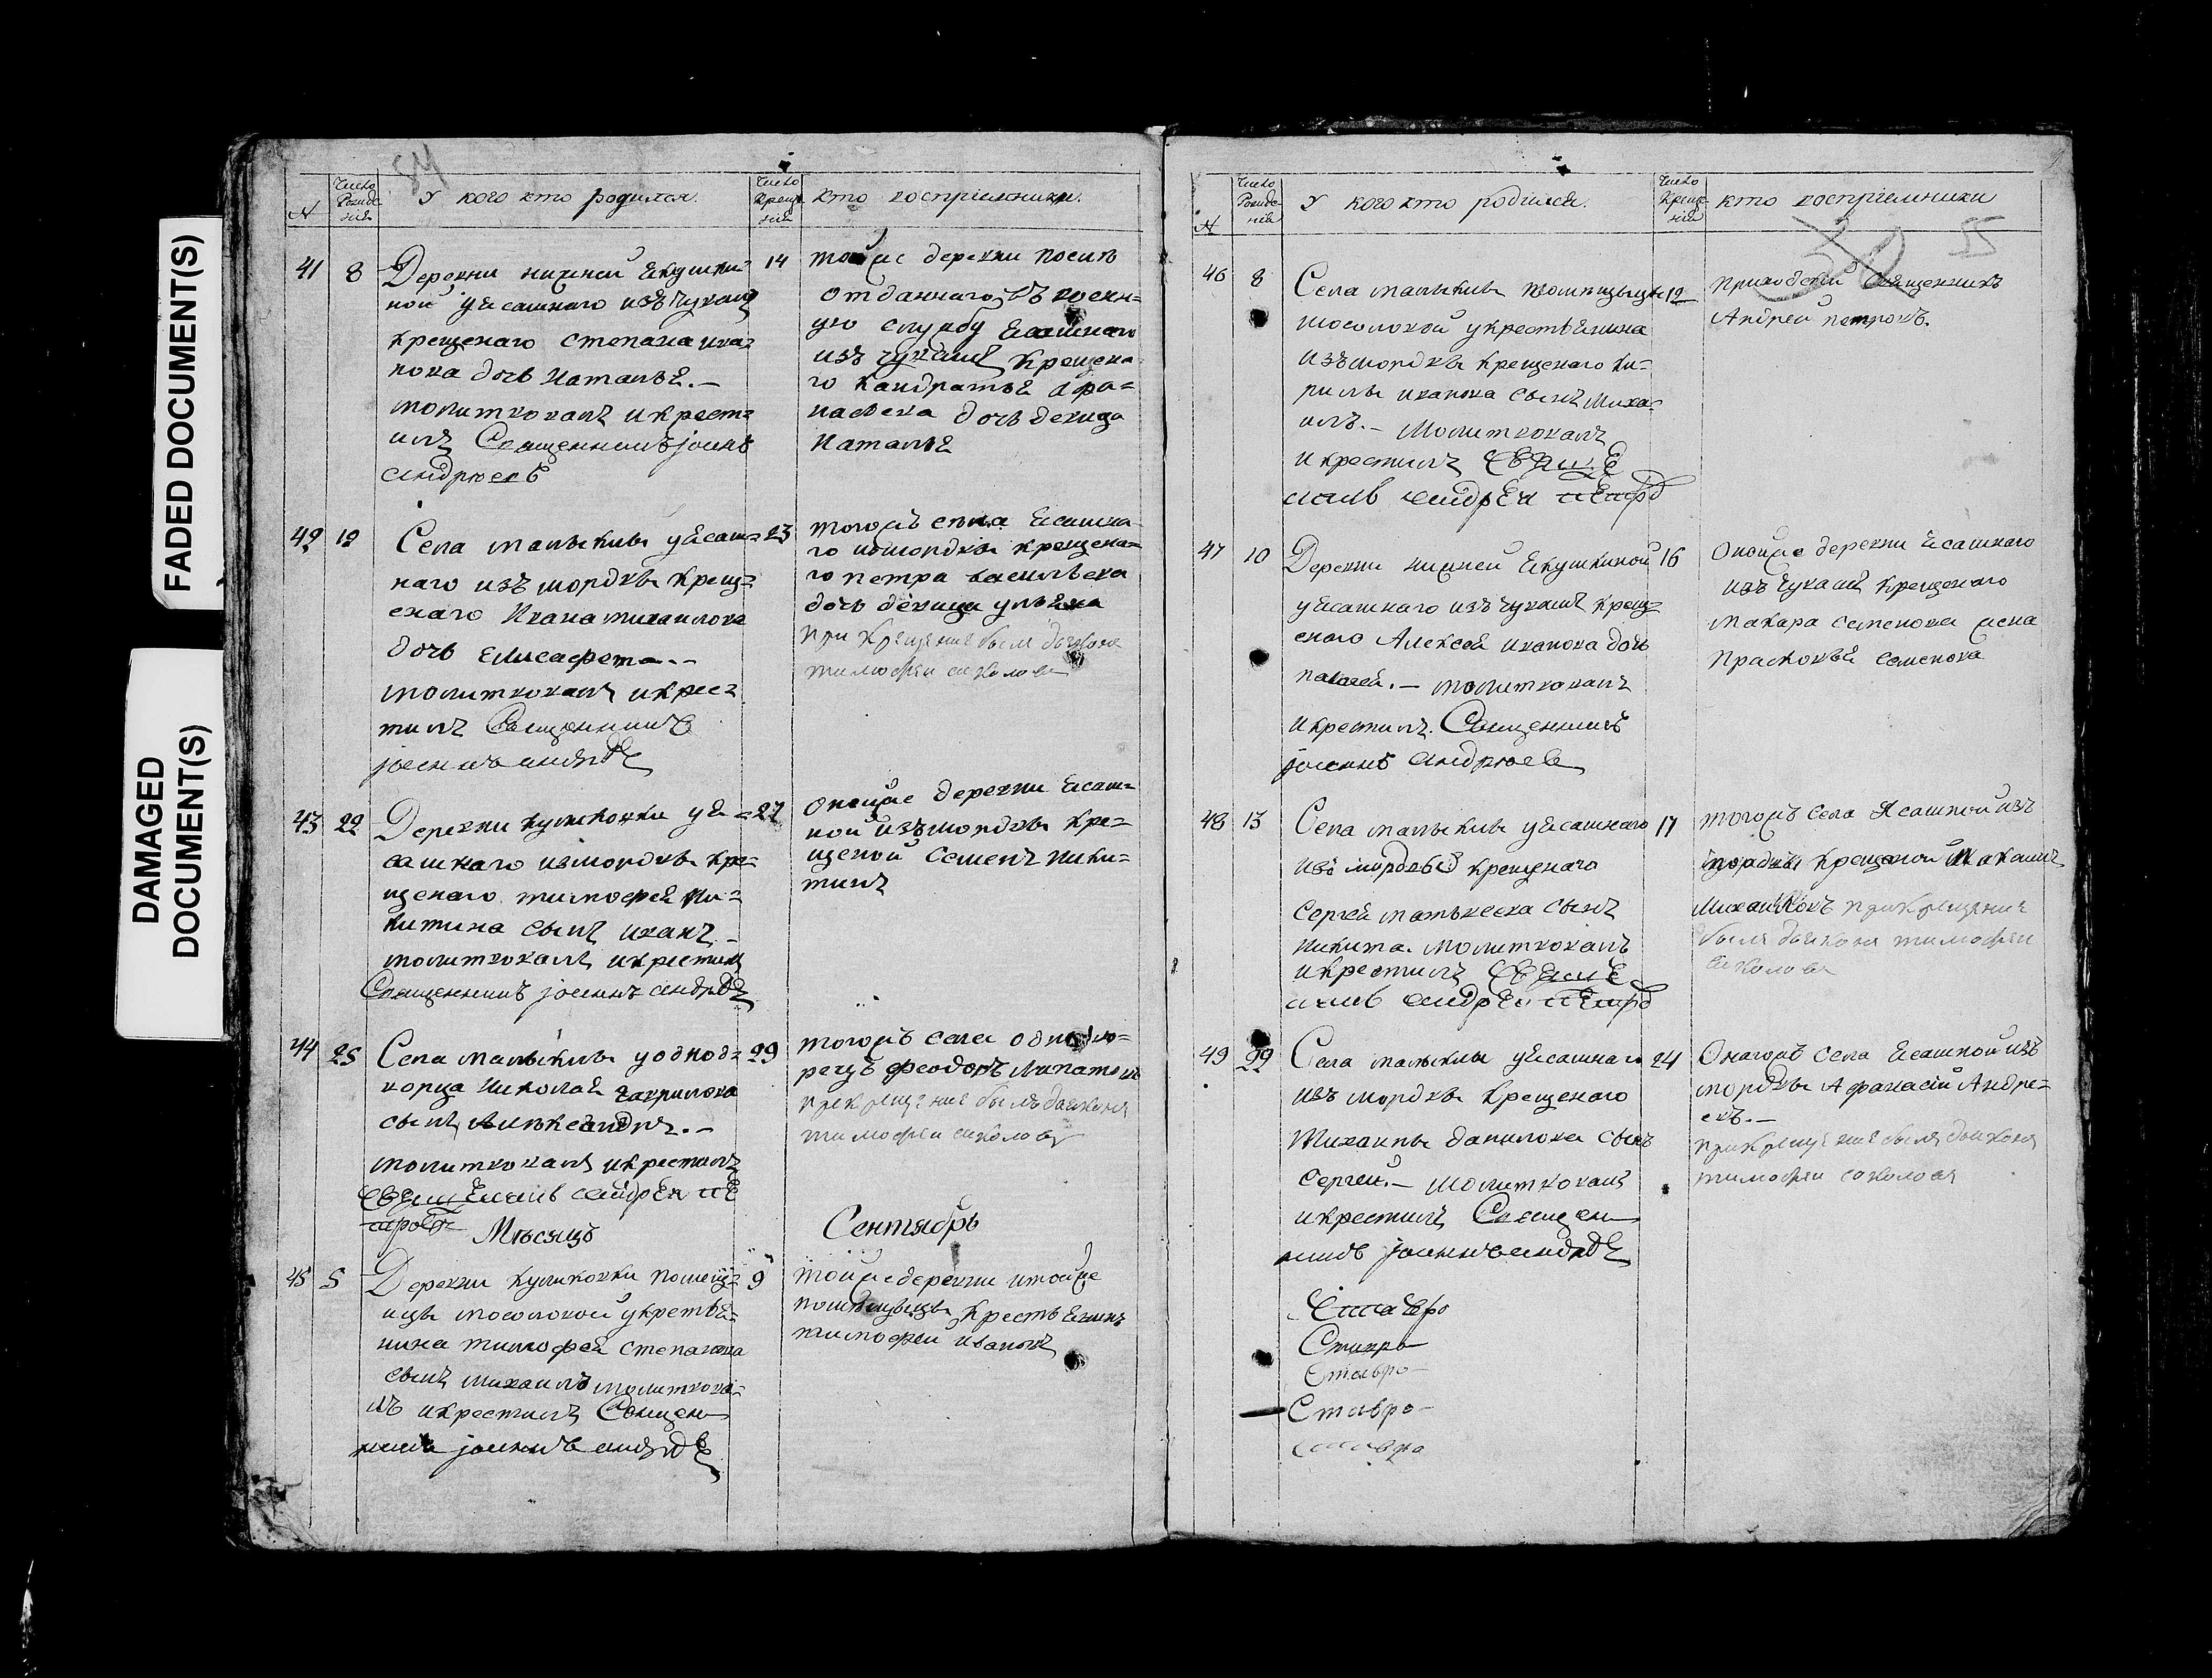 FADED DOCUMENT(S)
DAMAGED
DOCUMENT(S)
54
N
Число Рожде-нія
У кого кто родился.
Число Креще-нія
кто восприемники.
41
8
Деревни нижней Якушки-
ной уясашнаго изъ чуваш
крещенаго степана ива-
нова дочь наталья.-
молитвовалъ икрест-
илъ Священникъ јоаннъ
андрюевъ
14
тойже деревни
отданнаго въ воен-
ную службу ясашнаго
изъ чувашъ крещена-
го кандратья афа-
насьева дочь девица
наталья
42
12
Села малыклы уясаш-
наго изъ мордвы крещ-
енаго Ивана михаилова
дочь елисафета.-
молитвовалъ икрес-
тилъ Священникъ
јоаннъ
23
тогожъ села ясашна-
го измордвы крещена-
го петра васильева
дочь девица ульяна
при крещение былъ дьяконъ
тимофеи соколовъ
43
22
Деревни куликовки уя-
сашнаго измордвы кре-
щенаго тимофея ни-
китина сынъ иванъ -
молитвовалъ икрестилъ
Священникъ јоаннъ
27
оной же деревни ясаш-
ной изъмордвы кре-
щеной семенъ ники-
тинъ
44
25
Села малыклы уоднод-
ворца николая гаврилова
сынъ александръ.-
молитвовалъ икрестилъ
священникъ андреи пе
тровъ
29
тогожъ села однодво-
рецъ феодоръ липатовъ
прикрещение былъ дьяконъ
тимофеи соколовъ
Мѣсяцъ
Сентябрь
45
5
Деревни куликовки помещ-
ицы мосоловой укретья-
нина тимофея степанова
сынъ михаилъ молитвова-
лъ икрестилъ Священ
никъ јоаннъ
9
тойже деревни итойже
помещицы крестьянинъ
тимофеи ивановъ
N
Число Рожде-нія
У кого кто родился.
Число Креще-нія
кто восприемники
30
55
46
8
Села малыклы помещицы
мосоловой укрестьянина
изъмордвы крещенаго ки-
рилы иванова сынъ миха-
илъ.- Молитвовалъ
икрестилъ свяще
никъ андреи петро
12
приходский священникъ
Андреи петровъ.
47
10
Деревни нижней Якушкиной
уясашнаго изъ чувашъ крещ-
енаго Алексея иванова дочь
.- молитвовалъ
икрестилъ. Священникъ
јоаннъ андрюевъ
16
Оной же деревни ясашнаго
изъ чувашъ крещенаго
макара семенова жена
прасковья семенова
48
13
Села малыклы уясашнаго
изъ мордвы крещенаго
Сергея матвеева сынъ
никита. Молитвовалъ
икрестилъ свяще
никъ андреи петро
17
тогожъ села Ясашной изъ
мордвы крещеной
Михаиловъ прикрещение
былъ дьяконъ тимофеи
соколовъ
49
22
Села малыклы уясашнаго
изъ мордвы крещенаго
михаилы данилова сынъ
сергеи.- Молитвовалъ
икрестилъ Священ
никъ јоаннъ
24
Онагожъ села ясашной изъ
мордвы Афанасий Андре-
евъ.-
прикрещение былъ дьяконъ
тимофеи соколовъ
Ставро
Ставро
Ставро